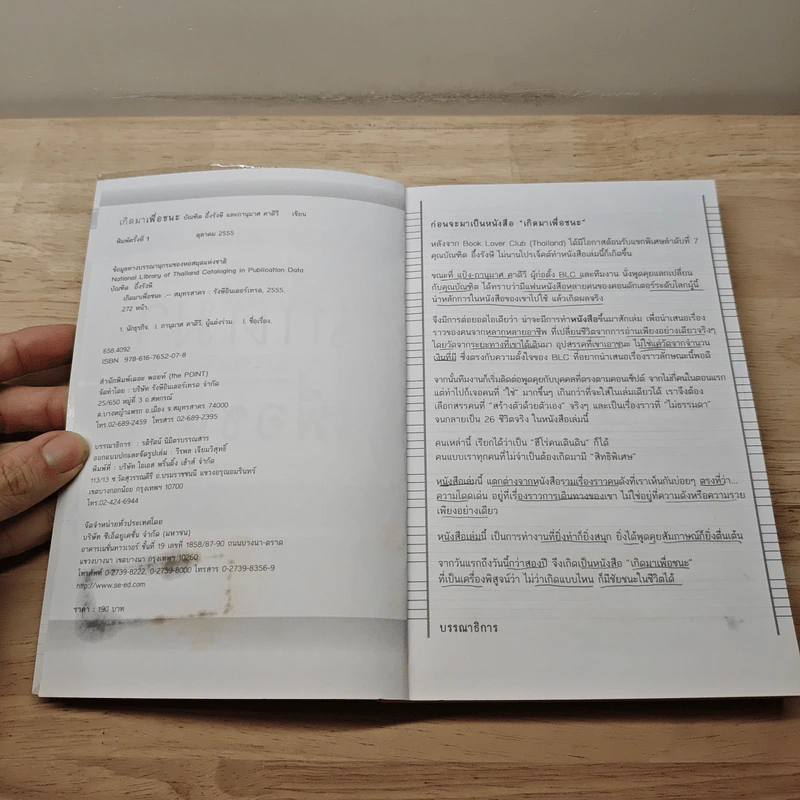 เกิดมาเพื่อชนะ บัณฑิต อึ้งรังษี และภานุมาศ คาดีวี เขียน
พิมพ์ครั้งที่ 1 ตุลาคม 2555
ข้อมูลทางบรรณานุกรมของหอสมุดแห่งชาติ
National Library of Thailand Cataloging in Publication Data
บัณฑิต อึ้งรังษี
เกิดมาเพื่อชนะ.-- สมุทรสาคร : รังษีอินเตอร์เทรด, 2555.
272 หน้า.
1. นักธุรกิจ. I. ภานุมาศ คาดีวี, ผู้แต่งร่วม. I. ชื่อเรื่อง.
658.4092
ISBN 978-616-7652-07-8
สำนักพิมพ์เดอะ พอยท์ (the POINT)
จัดทำโดย : บริษัท รังษีอินเตอร์เทรด จำกัด
25/650 หมู่ที่ 3 ถ.สหกรณ์
ต.บางหญ้าแพรก อ.เมือง จ.สมุทรสาคร 74000
โทร.02-689-2459 โทรสาร 02-689-2395
บรรณาธิการ : รติรัตน์ นิมิตรบรรณสาร
ออกแบบปกและจัดรูปเล่ม : วีรพล เจียมวิสุทธิ์
พิมพ์ที่ : บริษัท ไอเอส พริ้นติ้ง เฮ้าส์ จำกัด
113/13 ซ.วัดสุวรรณคีรี ถ.บรมราชชนนี แขวงอรุณอมรินทร์
เขตบางกอกน้อย กรุงเทพฯ 10700
โทร.02-424-6944
จัดจำหน่ายทั่วประเทศโดย
บริษัท ซีเอ็ดยูเคชั่น จำกัด (มหาชน)
อาคารเนชั่นทาวเวอร์ ชั้นที่ 19 เลขที่ 1858/87-90 ถนนบางนา-ตราด
แขวงบางนา เขตบางนา กรุงเทพฯ 10260
โทรศัพท์ 0-2739-8222, 0-2739-8000 โทรสาร 0-2739-8356-9
http://www.se-ed.com
ราคา : 190 บาท
ก่อนจะมาเป็นหนังสือ "เกิดมาเพื่อชนะ"
หลังจาก Book Lover Club (Thailand) ได้มีโอกาสต้อนรับแขกพิเศษลำดับที่ 7
คุณบัณฑิต อึ้งรังษี ไม่นานโปรเจ็คต์ทำหนังสือเล่มนี้ก็เกิดขึ้น
ขณะที่ แป้ง-ภานุมาศ คาดีวี ผู้ก่อตั้ง BLC และทีมงาน นั่งพูดคุยแลกเปลี่ยน
กับคุณบัณฑิต ได้ทราบว่ามีแฟนหนังสือหลายคนของคอนดักเตอร์ระดับโลกผู้นี้
นำหลักการในหนังสือของเขาไปใช้ แล้วเกิดผลจริง
จึงมีการต่อยอดไอเดียว่า น่าจะมีการทำหนังสือขึ้นมาสักเล่ม เพื่อนำเสนอเรื่อง
ราวของคนจากหลากหลายอาชีพ ที่เปลี่ยนชีวิตจากการอ่านเพียงอย่างเดียวจริงๆ
โดยวัดจากระยะทางที่เขาได้เดินมา อุปสรรคที่เขาเอาชนะ ไม่ใช่แค่วัดจากจำนวน
เงินที่มี ซึ่งตรงกับความตั้งใจของ BLC ที่อยากนำเสนอเรื่องราวลักษณะนี้พอดี
จากนั้นทีมงานก็เริ่มติดต่อพูดคุยกับบุคคลที่ตรงตามคอนเซ็ปต์ จากไม่กี่คนในตอนแรก
แต่ทำไปก็เจอคนที่ "ใช่" มากขึ้นๆ เกินกว่าที่จะใส่ในเล่มเดียวได้ เราจึงต้อง
เลือกสรรคนที่ "สร้างตัวด้วยตัวเอง" จริงๆ และเป็นเรื่องราวที่ "ไม่ธรรมดา"
จนกลายเป็น 26 ชีวิตจริง ในหนังสือเล่มนี้
คนเหล่านี้ เรียกได้ว่าเป็น "ฮีโร่คนเดินดิน" ก็ได้
คนแบบเราทุกคนที่ไม่จำเป็นต้องเกิดมามี "สิทธิพิเศษ"
หนังสือเล่มนี้ แตกต่างจากหนังสือรวมเรื่องราวคนดังที่เราเห็นกันบ่อยๆ ตรงที่ว่า...
ความโดดเด่น อยู่ที่เรื่องราวการเดินทางของเขา ไม่ใช่อยู่ที่ความดังหรือความรวย
เพียงอย่างเดียว
หนังสือเล่มนี้ เป็นการทำงานที่ยิ่งทำก็ยิ่งสนุก ยิ่งได้พูดคุยสัมภาษณ์ก็ยิ่งตื่นเต้น
จากวันแรกถึงวันนี้กว่าสองปี จึงเกิดเป็นหนังสือ "เกิดมาเพื่อชนะ"
ที่เป็นเครื่องพิสูจน์ว่า ไม่ว่าเกิดแบบไหน ก็มีชัยชนะในชีวิตได้
บรรณาธิการ